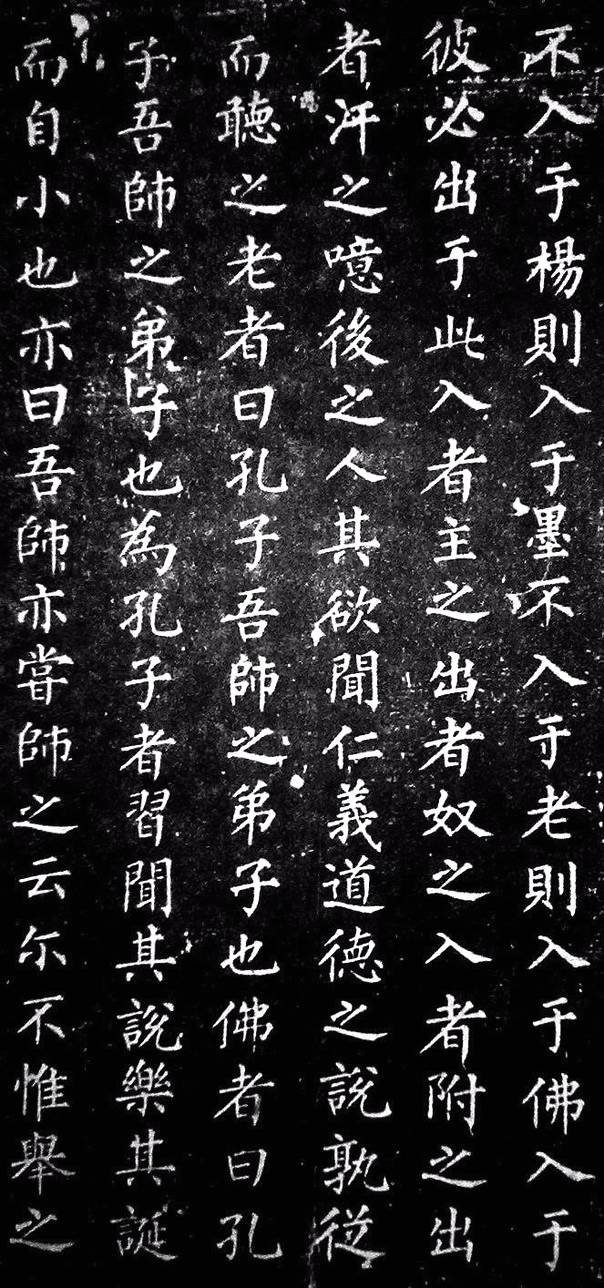 不入于楊則入于墨不入于老則入于佛入于
彼必出于此入者主之出者奴之入者附之出
者汙之噫後之人其欲聞仁義道德之說孰從
而聽之老者曰孔子吾師之弟子也佛者曰孔
子吾師之弟子也為孔子者習聞其說樂其誕
而自小也亦曰吾師亦嘗師之云尒不惟舉之